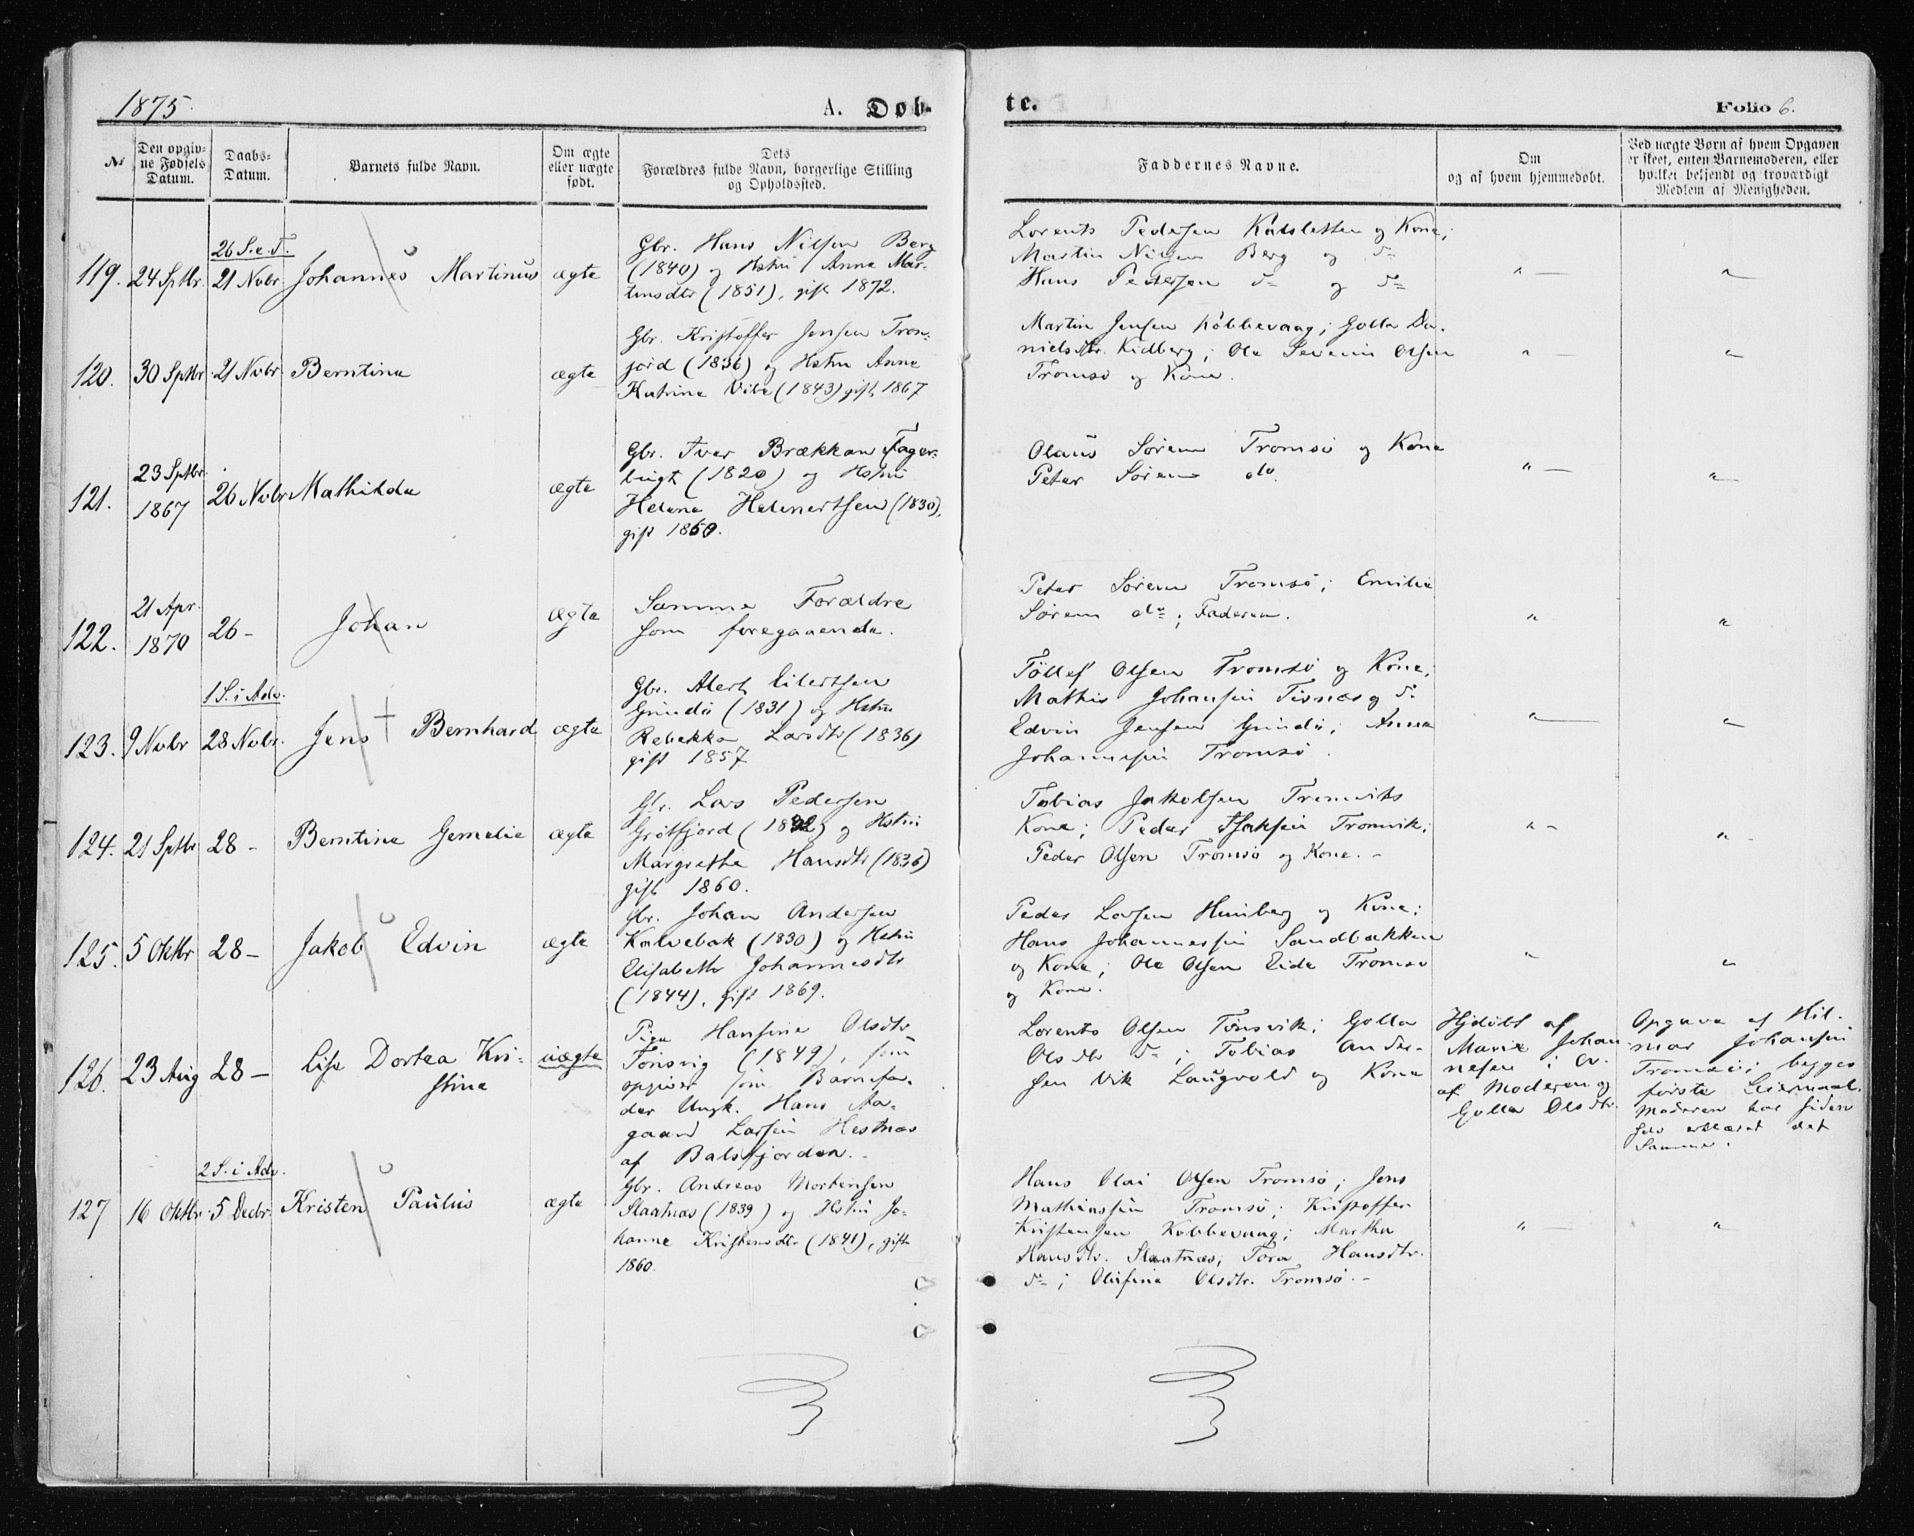 1875.
A. Døb-
te.
Folio 6.
No
Den opgiv-
ne Fødsels
Datum.
Daabs-
Datum.
Barnets fulde Navn.
Om ægte
eller uægte
født.
Dets
Forældres fulde Navn, borgerlige Stilling
og Opholdssted.
Faddernes Navne.
Om
og af hvem hjemmedøbt.
Ved uægte Børn af hvem Opgaven
er skeet, enten Barnemoderen, eller
hvilket bekjendt og troværdigt
Medlem af Menigheden.
26 S. e. T.
119. 24 Sptbr. 21 Nvbr. Johannes Martinus ægte
Gbr. Hans Nilsen Berg
(1840) og Hstru Anna Mar-
tinsdtr (1851), gift 1872.
Lorents Pedersen Kalsletten og Kone;
Martin Nilsen Berg og do
Hans Pedersen do og do
" — "
120. 30 Sptbr 21 Nvbr Berntina ægte
Gbr. Kristoffer Jensen Tron-
jord (1836) og Hstru Anne
Katrina Vibe (1843) gift 1867
Martin Jensen Kobbevaag; Golla Da-
nielsdtr. Kidberg; Ole Severin Olsen
Tromsø og Kone.
" — "
121. 23 Sptbr.
1867
26 Nvbr Mathilda ægte
Gbr. Iver Brækkan Fager-
bugt (1820) og Hstru
Helene Helmertsen (1830),
gift 1850.
Olaus Sørem Tromsø og Kone
Peter Sørem do.
" — "
122. 21 Apr.
1870
26 - Johan ægte
Samme Forældre
som foregaaende.
Peter Sørem Tromsø; Emilie
Sørem do; Faderen.
" "
1 S. i Adv.
123. 9 Nvbr 28 Nvbr. Jens † Bernhard ægte
Gbr. Alert Eilertsen
Grindø (1831) og Hstru
Rebekka Larsdtr (1836)
gift 1857
Tøllef Olsen Tromsø og Kone;
Mathis Johansen Tisnæs og do
Edvin Jensen Grindø; Anna
Johannesen Tromsø.
" — "
124. 21 Sptbr 28 - Berntina Gemelie ægte
Gbr. Lars Pedersen
Grøtfjord (1832) og Hstru
Margrethe Hansdtr (1836)
gift 1860.
Tobias Jakobsen Tromvik
Kone; Peder Isaksen Tromvik;
Peder Olsen Tromsø og Kone. -
" - "
125. 5 Oktbr 28 - Jakob Edvin ægte
Gbr. Johan Andersen
Kalvebak (1830) og Hstru
Elisabeth Johannesdtr
(1844), gift 1869.
Peder Larsen Hunberg og Kone;
Hans Johannessen Sandbakken
og Kone; Ole Olsen Eide Tromsø
og Kone.
" "
126. 23 Aug 28 - Lise Dortea Kri-
stine
uægte
Pige Hansine Olsdtr
Tonsvig (1849), som
opgiver som Barnefa-
der Ungk. Hans Aa-
gaard Larsen Hestnæs
af Balsfjorden. -
Lorents Olsen Tonsvik; Golla
Olsdtr do; Tobias Ander-
sen Vik Laugvold og Kone
Hjdøbt af
Marie Johan-
nesen i
af Moderen og
Golla Olsdtr.
Opgave af Hil-
mar Johansen
Tromsø; begges
første Leiermaal.
Moderen har siden
selv erklæret det
Samme.
2 S. i Adv.
127 16 Oktbr 5 Decbr. Kristen Paulus ægte
Gbr. Andreas Mortensen
Slaatnæs (1839) og Hstru Jo-
hanne Kristensdtr (1841), gift
1860.
Hans Olai Olsen Tromsø; Jens
Mathiassen Tromsø; Kristoffer
Kristensen Kobbevaag; Martha
Hansdtr. Slaatnæs; Tora Hansdtr.
do; Olufine Olsdtr. Tromsø. -
" — "